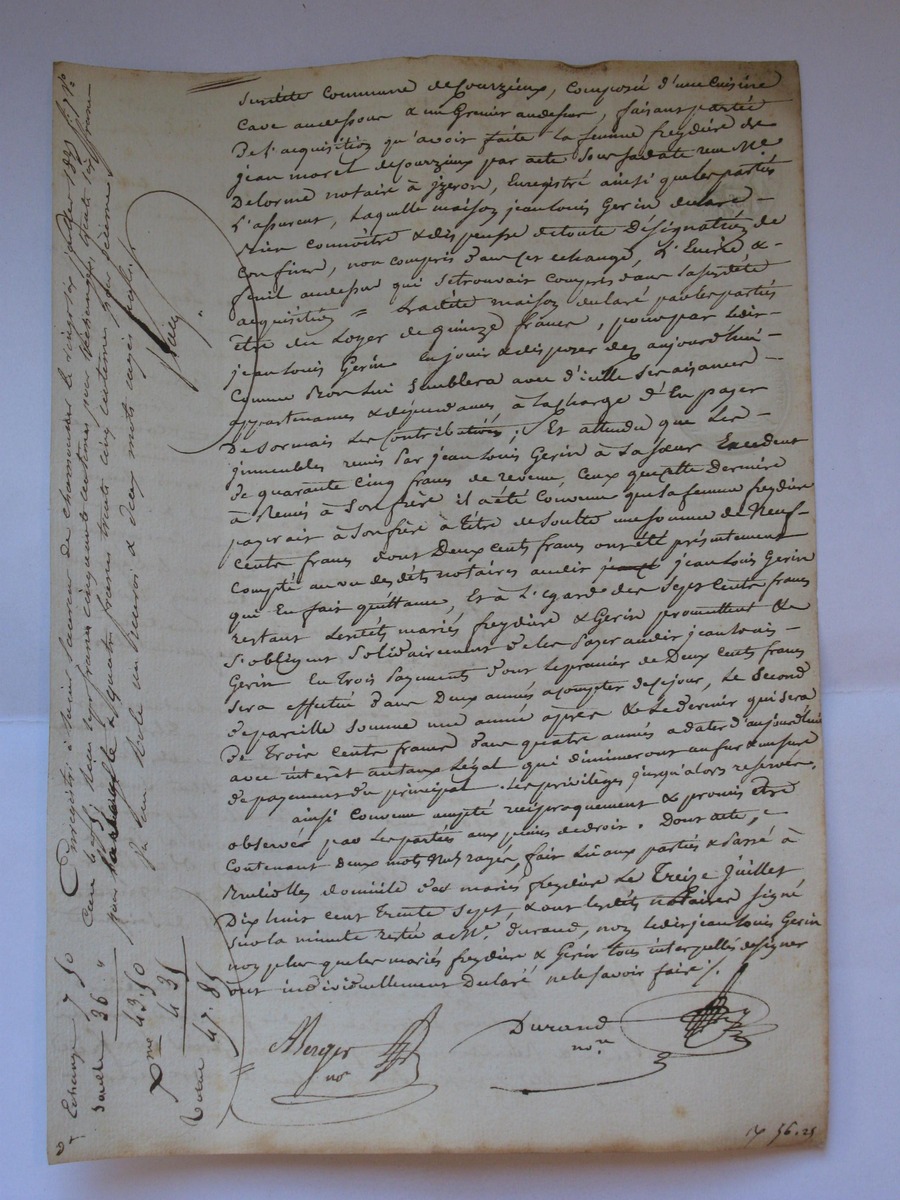 Susdite commune de Courzieux, composée d'une Cuisine
Cave audessous & un Grenier audessus, faisant partie
De l'acquisition qu'avoit faite la femme freydiere de
jean morel de Courzieux par acte Sous sa date reçu Me
Delorme notaire à yzeron, Enregistré ainsi que les parties
L'assurent, Laquelle maison jean Louis Gerin declare
Bien connoitre & dispense de toute Désignation de
Confins, non compris dans cet echange, L'Ecurie &
fenil audessus qui se trouvoit compris dans la susdite
acquisition = La dite maison declaré par les parties
être du Loyer de quinze francs, pour par ledit
jean Louis Gerin En jouir & disposer dez aujourd'hui
Comme Bon Lui Semblera avec d'icelle Ses aisances
appartenances & dépendances à la charge d'En payer
Desormais Les Contributions ; Et attendu que Les
jmmeubles remis Par jean Louis Gerin à Sa Sœur Excedent
de quarante Cinq francs de revenu, Ceux que cette derniere
à Remis à Son frère il a été Convenu que la femme freydiere
payerait à Son frère à Titre de Soulte une somme de Neuf
Cents francs dont Deux Cents francs ont été présentement
Compté au vu des dits notaires audit jean Louis Gerin
qui En fait quittance, Et à L'egard des Sept Cents francs
restant Lesdits mariés freydiere & Gerin promettent &
S'obligent Solidairement de les Payer audit jean Louis
Gerin En Trois Payements dont Le premier de Deux Cents francs
Sera effectué dans Deux années à compter de ce jour, Le Second
de pareille Somme une année après & Le dernier qui Sera
De Trois Cents francs dans quatre années à dater d'aujourd'hui
avec interêt au taux Légal qui diminueront au fur & mesure
de payement du principal. Les privilèges jusqu'alors reservés.
ainsi Convenu accepté reciproquement & promis être
observé par Les parties aux peines de droit. Dont acte,
Contenant Deux mots Nuls rayés, fait Lu aux parties & Passé à
Brullioles domicile des mariés freydiere Le Treize Juillet
Dix huit cent Trente Sept, & ont lesdits notaires Signé
Sur la minute restée à Me. Durand, non Ledit jean Louis Gerin
non plus que les mariés freydiere & Gerin tous interpellés de Signer
ont individuellement Declaré ne le Savoir faire /.
Merger
no
Durand
nore
56.25
Enregistré à Saint Laurent de Chamousset le juillet 1837
Reçu Sept francs Cinquante centimes pour l'échange, trente Six francs
pour la Soulte & quatre francs trente Cinq centimes pour dixieme
Echange 7 50
Soulte 36 "
43.50
Xme 4 35
Total 47.85